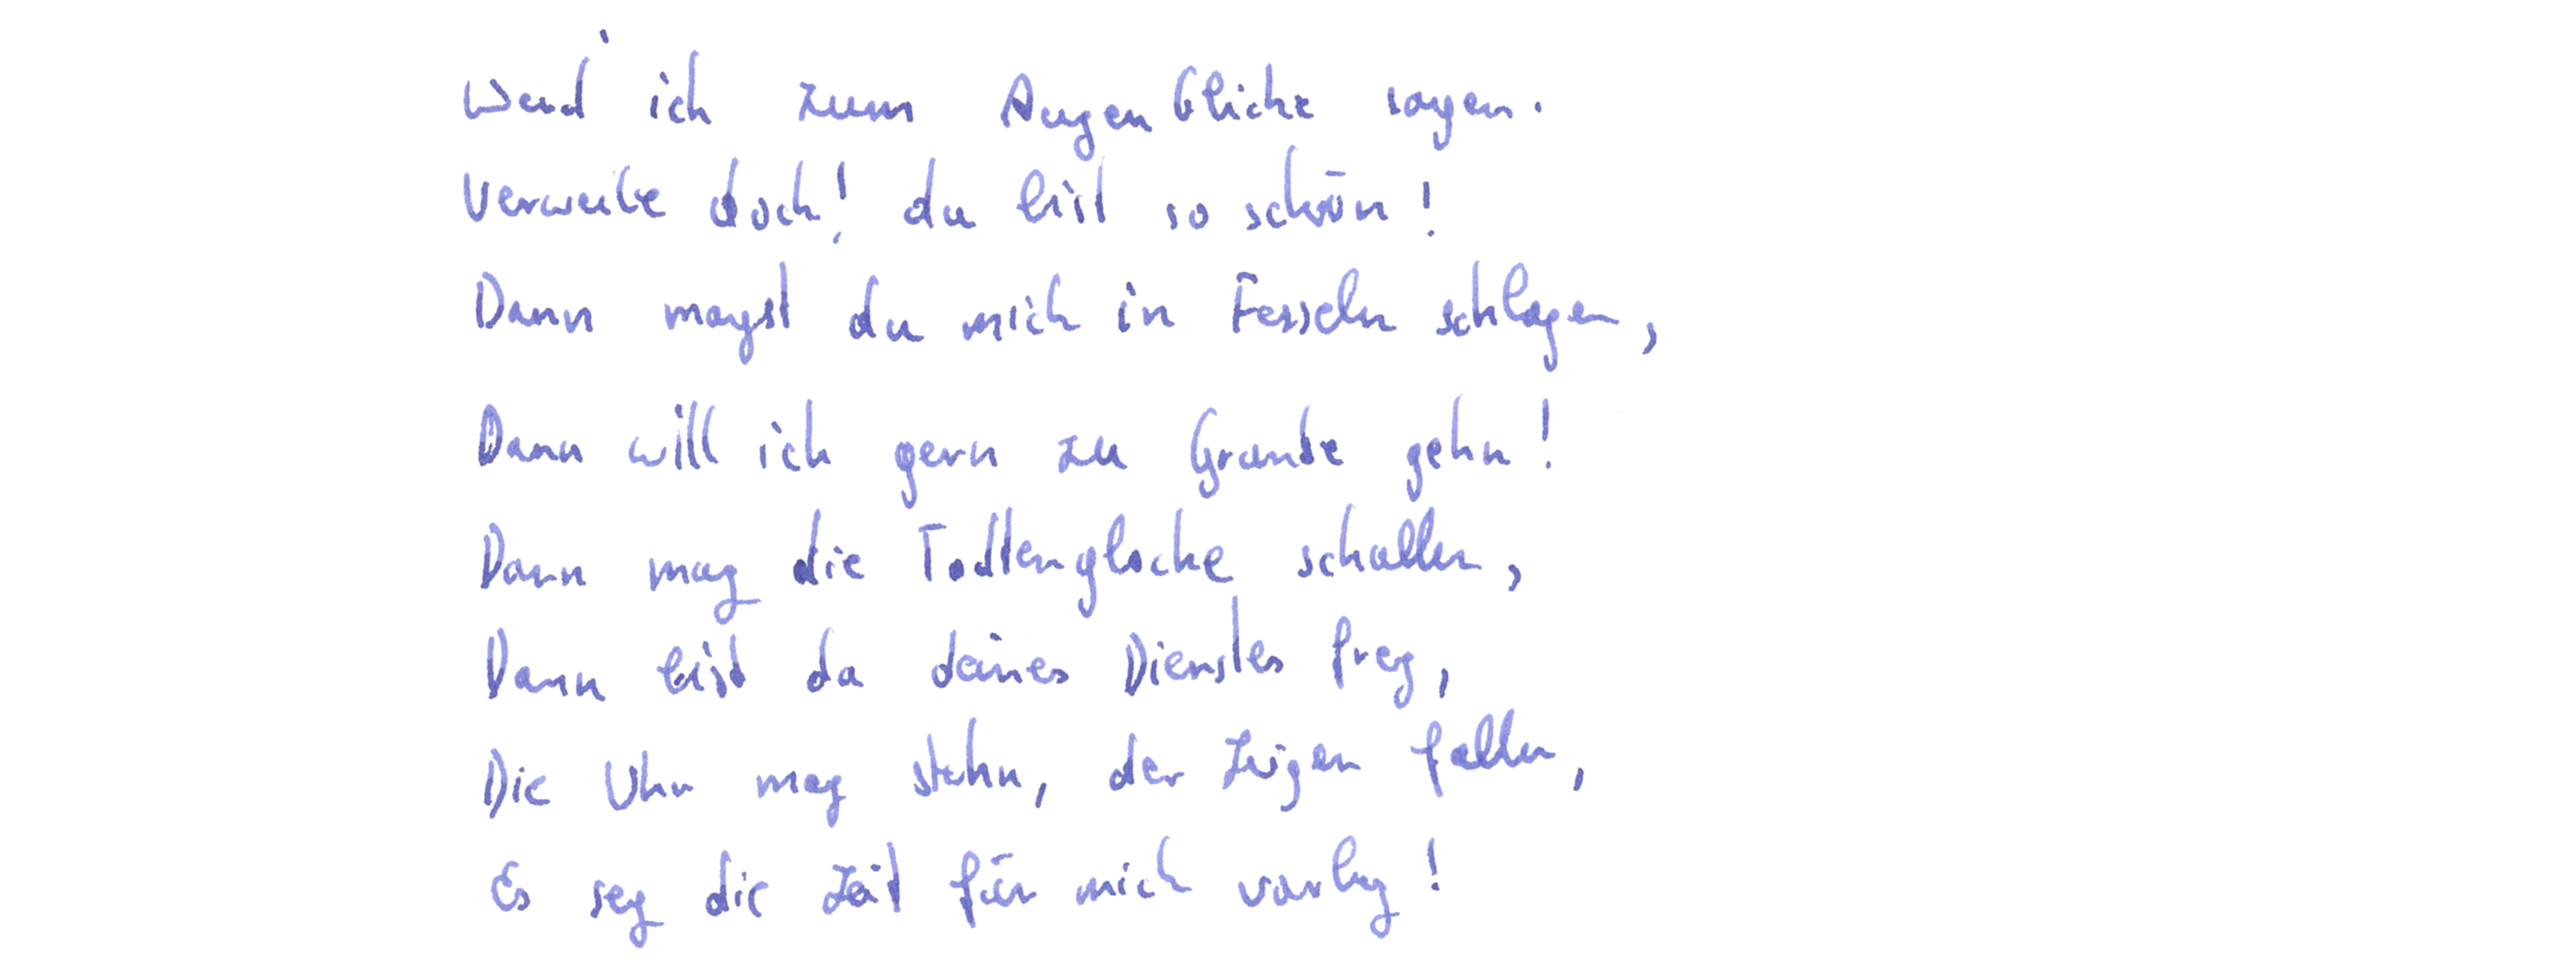 Werd' ich zum Augenblicke sagen.
Verweile doch! du bist so schön!
Dann magst du mich in Fesseln schlagen,
Dann will ich gern zu Grunde gehn!
Dann mag die Todtenglocke schallen,
Dann bist du deines Dienstes frey,
Die Uhr mag stehn, der Zeiger fallen,
Es sey die Zeit für mich vorbey!